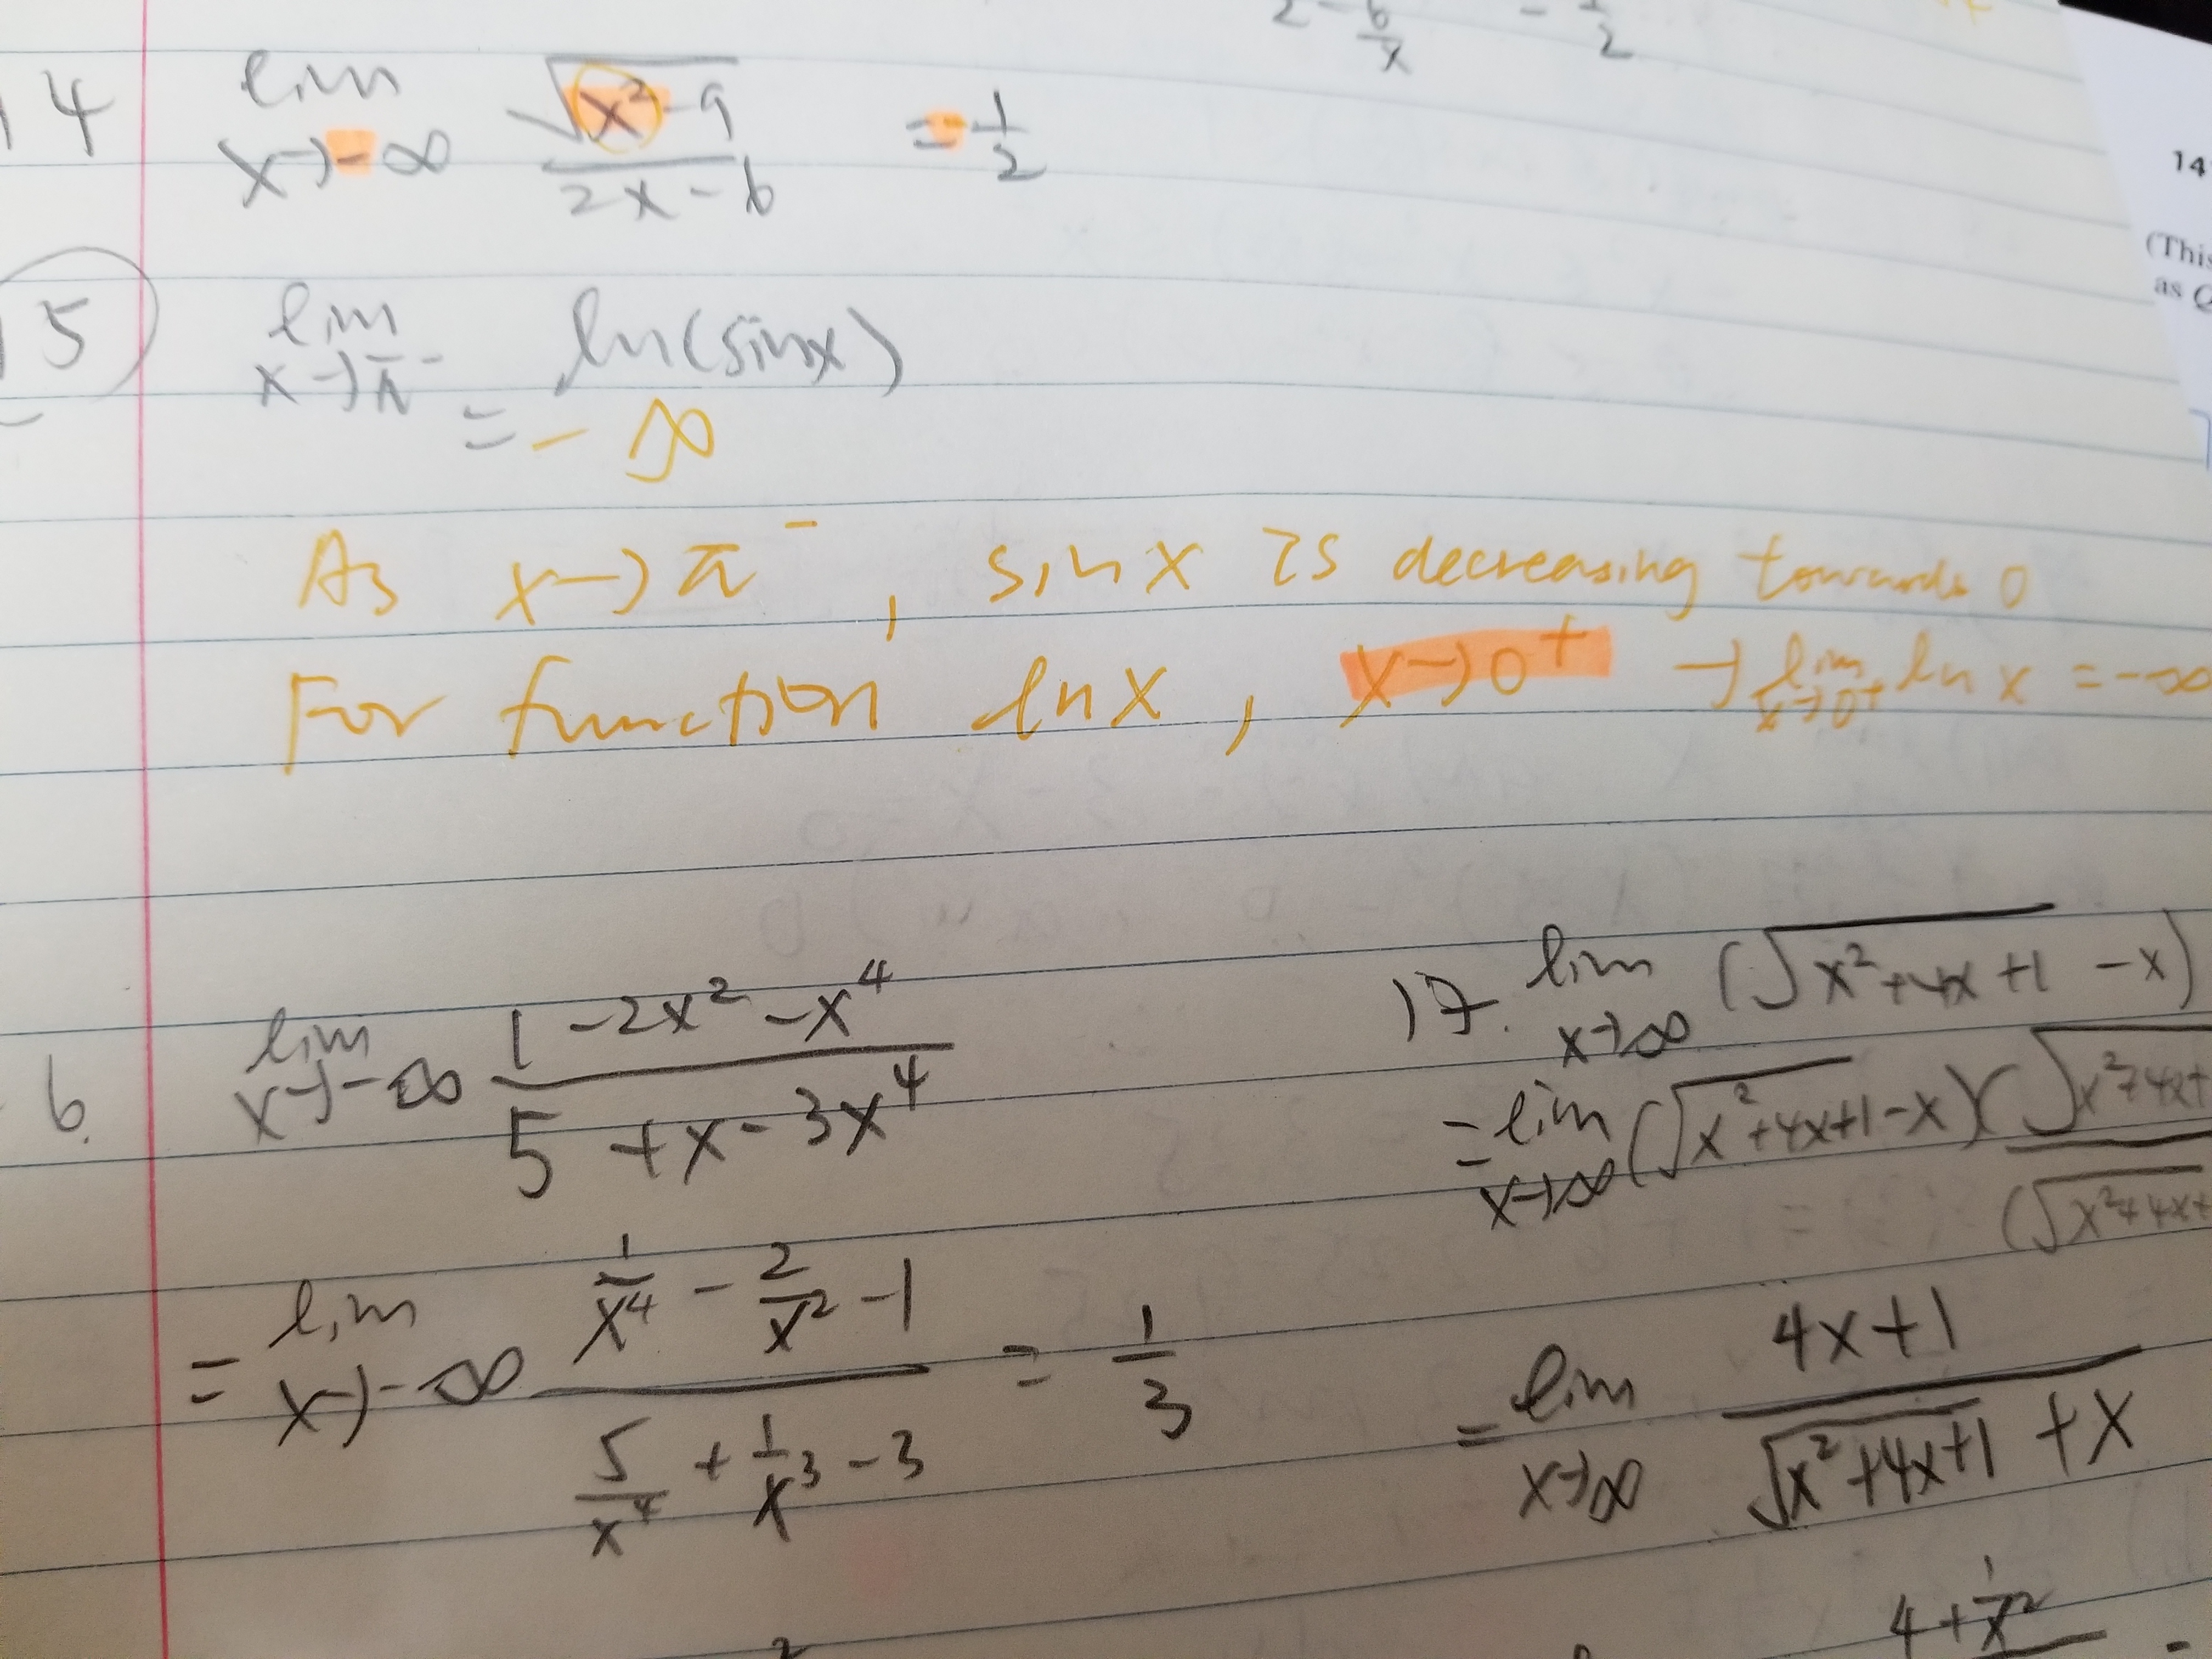 2 - 6/x
- 1/2
14 lim x→-∞ √(x²-9) / (2x-6) = -1/2
15 lim x→π⁻ ln(sinx)
= -∞
As x→π⁻, sinx is decreasing towards 0
For function lnx, x→0⁺ → lim x→0⁺ ln x = -∞
6. lim x→-∞ (1-2x²-x⁴) / (5+x-3x⁴)
= lim x→-∞ (1/x⁴ - 2/x² - 1) / (5/x⁴ + 1/x³ - 3) = 1/3
17. lim x→∞ (√(x²+4x+1) - x)
= lim x→∞ (√(x²+4x+1) - x)(√(x²+4x+
(√(x²+4x+
= lim x→∞ (4x+1) / (√(x²+4x+1) + x)
14
(This
as Q